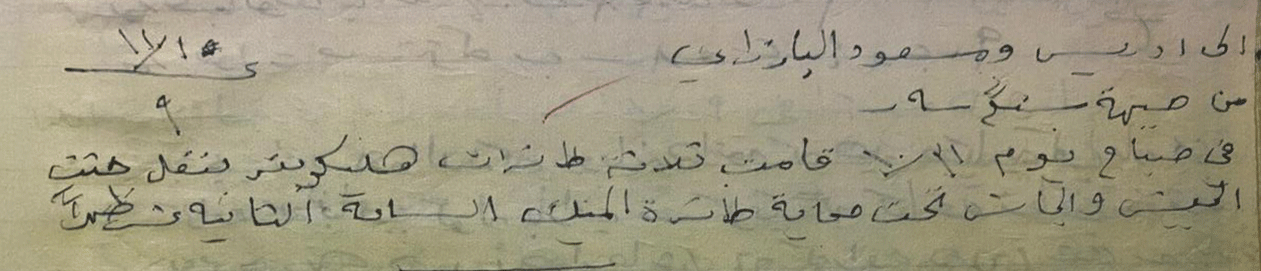 الى ادريس ومسعود البارزاني
من جبهة سنگه سه ر
٩
في صباح يوم قامت ثلاثة طائرات هليكوبتر بنقل جثث
الجيش والجاش تحت حماية طائرة الميك الساعة الثانية ظهراً